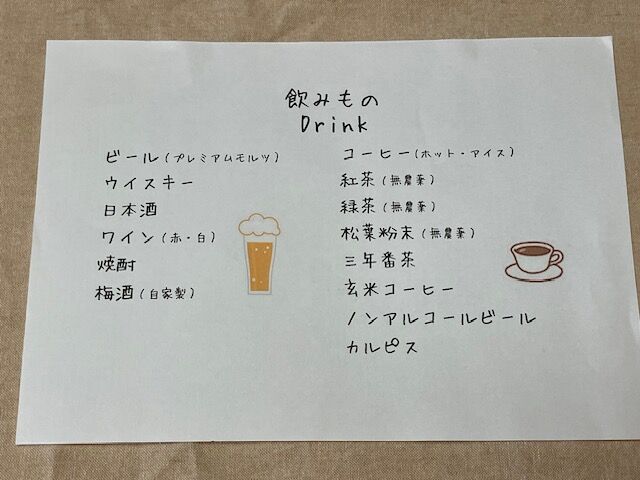 飲みもの
Drink
ビール(プレミアムモルツ)
ウイスキー
日本酒
ワイン(赤・白)
焼酎
梅酒(自家製)
コーヒー(ホット・アイス)
紅茶(無農薬)
緑茶(無農薬)
松葉粉末(無農薬)
三年番茶
玄米コーヒー
ノンアルコールビール
カルピス